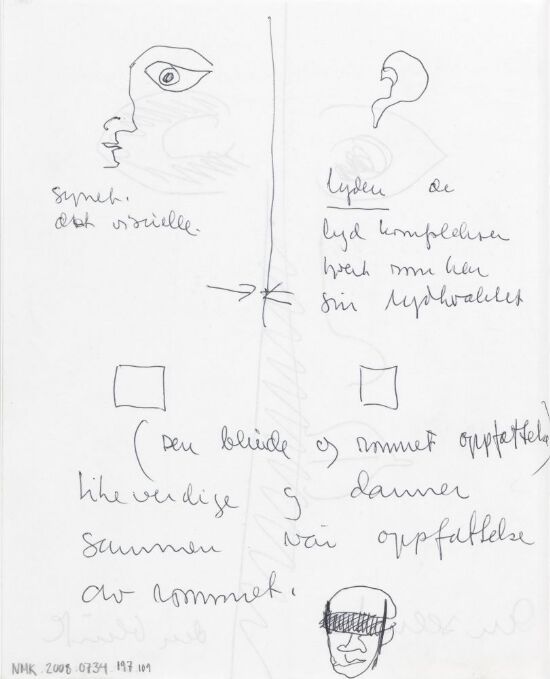 synet.
det visuelle.
lyden de
lyd komplekser
hvert rom har
sin lydkvalitet
(Den blinde og rommet oppfattelse)
likeverdige og danner
sammen vår oppfattelse
av rommet.
NMK.2008.0734 197.109